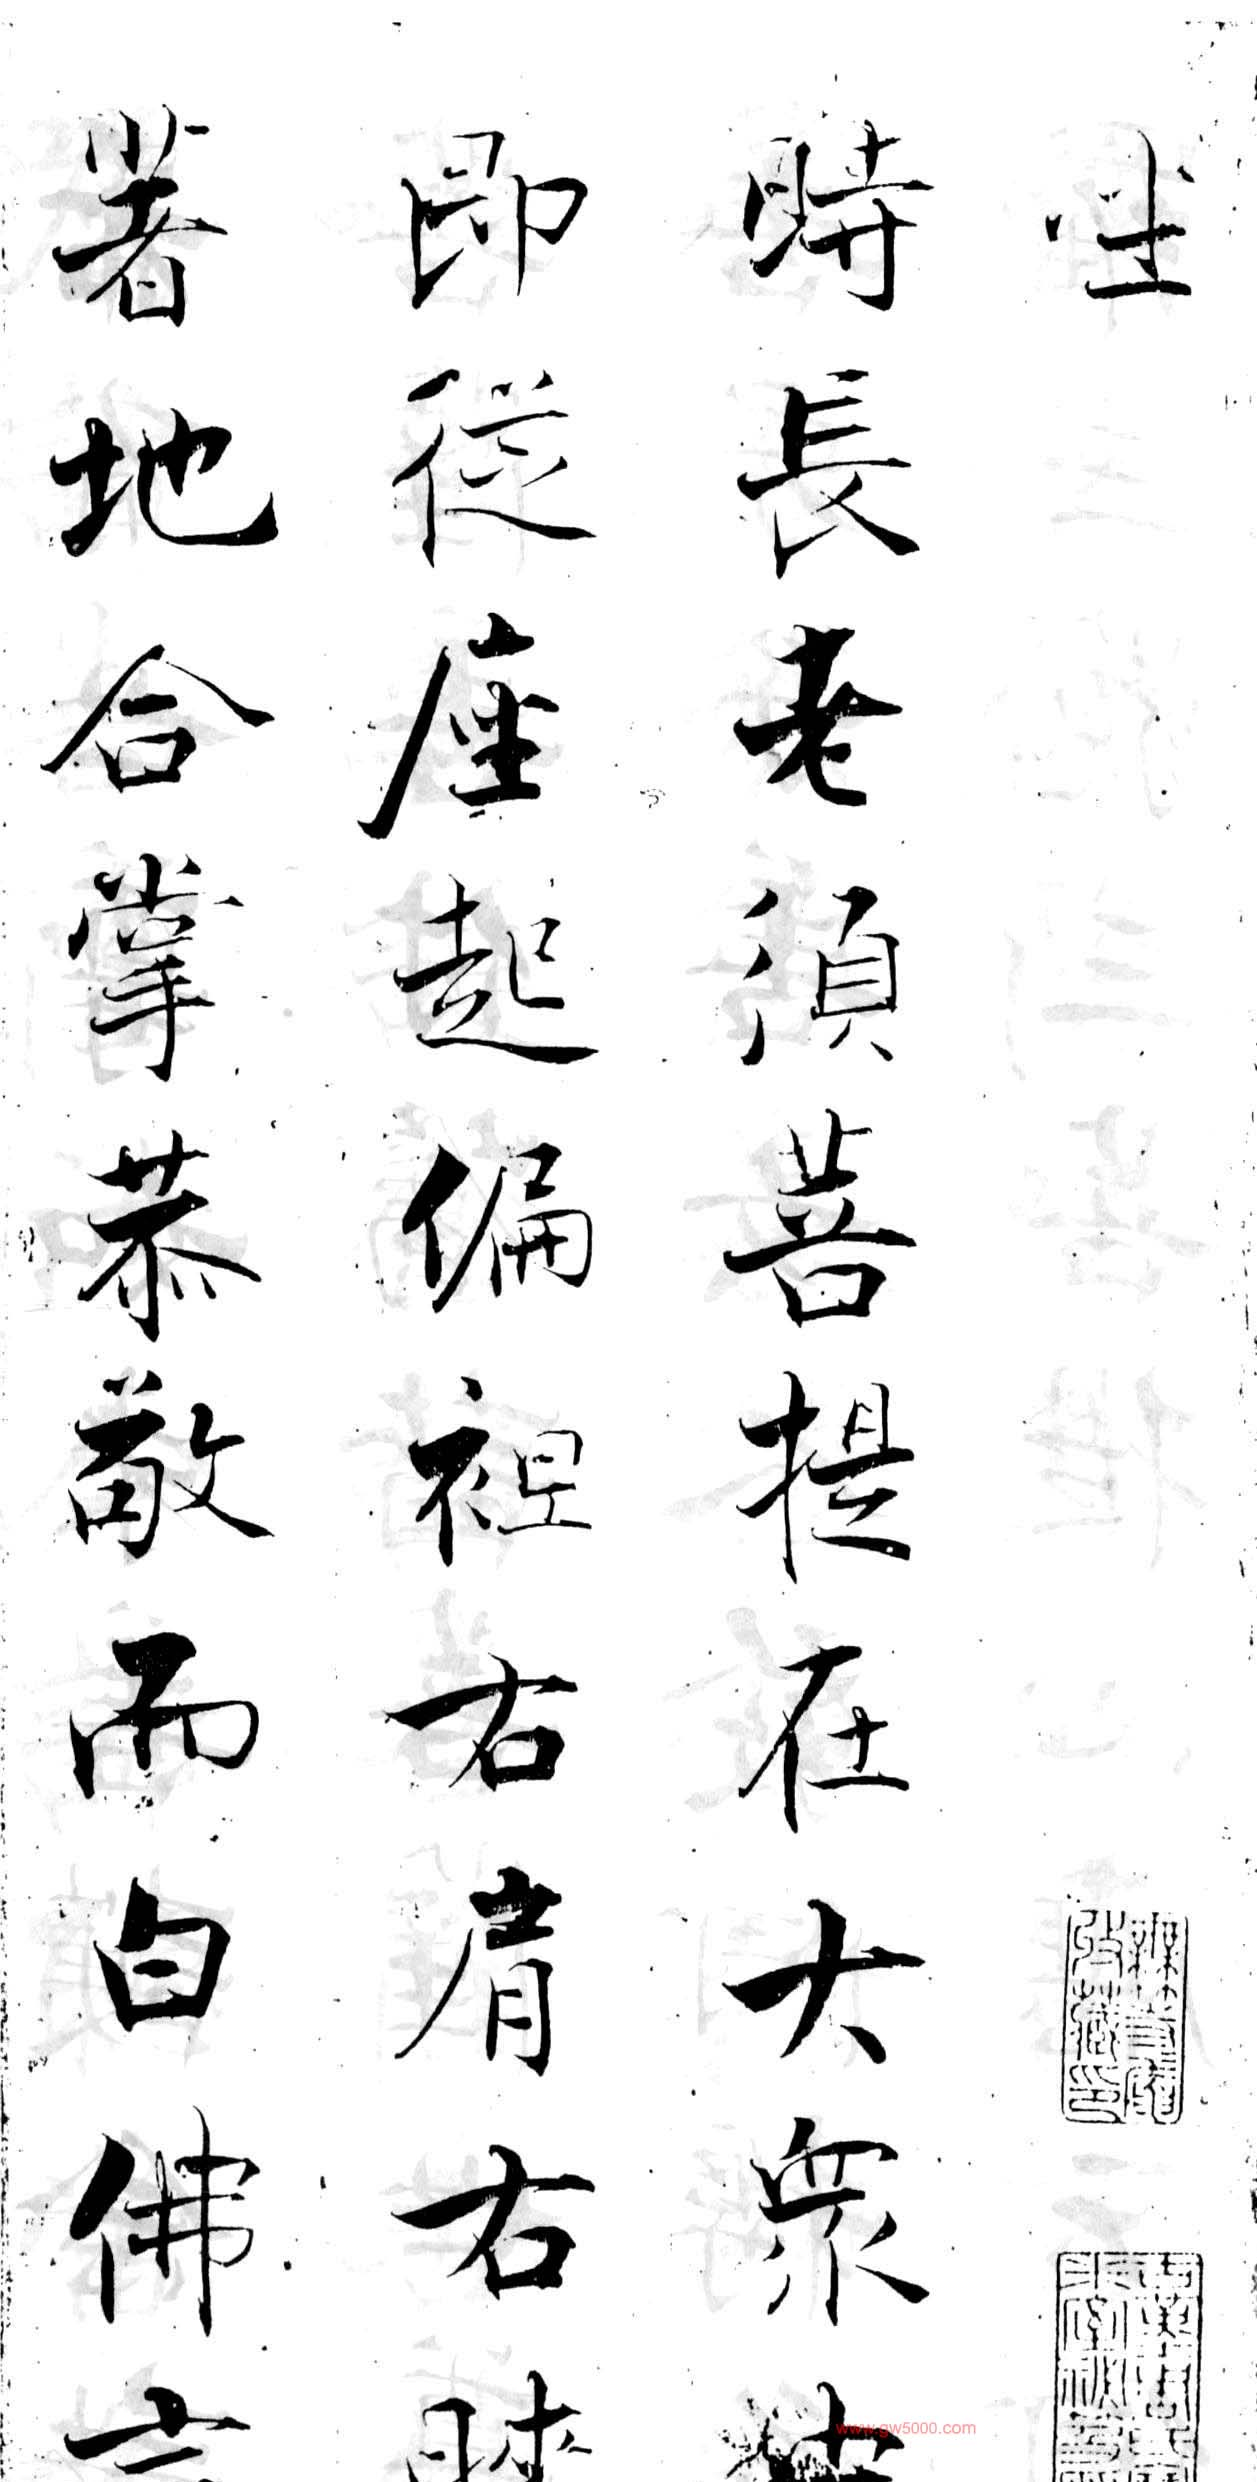 坐
時長老須菩提在大衆
即從座起偏袒右肩右膝
著地合掌恭敬而白佛言
www.gw5000.com